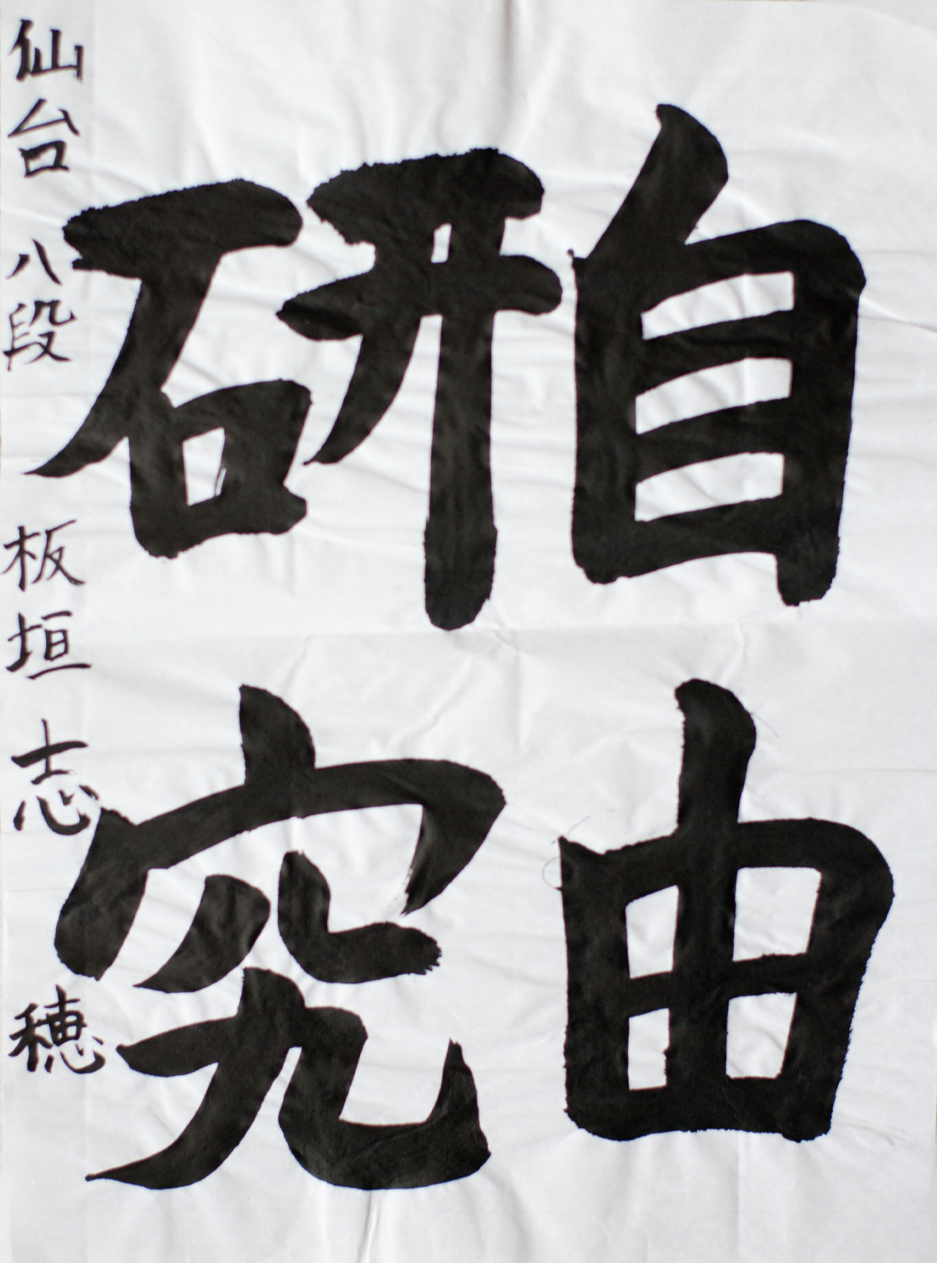 自由
研究
仙台 八段 板垣 志 穂